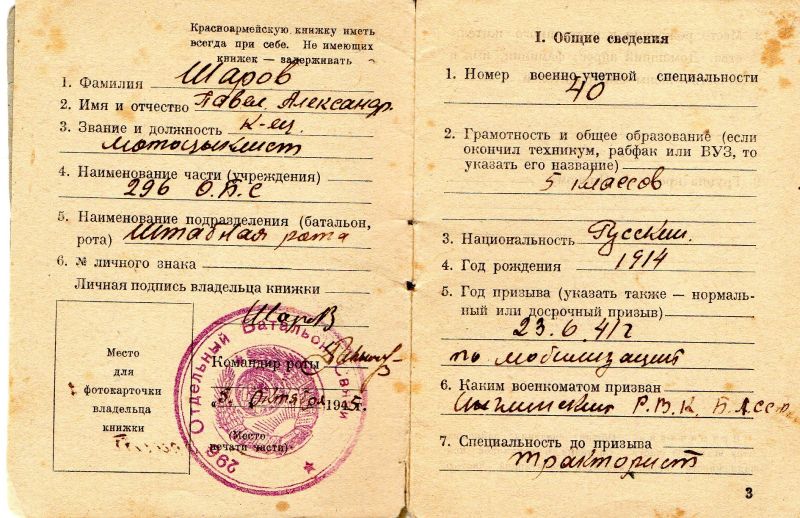 Красноармейскую книжку иметь
всегда при себе. Не имеющих
книжек — задерживать
1. Фамилия Шаров
2. Имя и отчество Павел Александр.
3. Звание и должность к-ец
мотоцыклист
4. Наименование части (учреждения)
296 О.Б.С
5. Наименование подразделения (батальон,
рота) Штабная рота
6. № личного знака
Личная подпись владельца книжки
Шаров
Место
для
фотокарточки
владельца
книжки
Командир роты
„3" октября 1945г.
(Место
печати части)
296 Отдельный Батальон Связи
I. Общие сведения
1. Номер военно-учетной специальности
40
2. Грамотность и общее образование (если
окончил техникум, рабфак или ВУЗ, то
указать его название)
5 классов
3. Национальность Русский.
4. Год рождения 1914
5. Год призыва (указать также — нормаль-
ный или досрочный призыв)
23.6.41г
по мобилизаций
6. Каким военкоматом призван
Р.В.К. Б.АССР
7. Специальность до призыва
тракторист
3